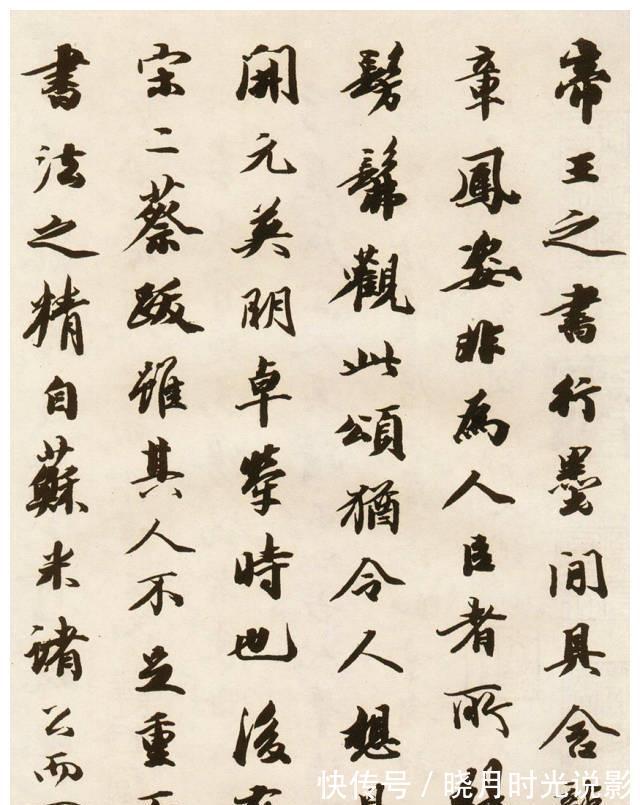 帝王之書行墨間具含
章鳳姿非為人臣者所
髣髴觀此頌猶令人想
開元英明卓犖時也後
宋二蔡跋雖其人不足重
書法之精自蘇米諸公而
快传号 / 晓月时光说影